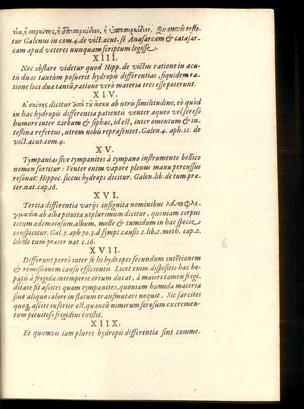 tetur Galenus in com. 4. de vict. acut. se Anasarcam & catasar-
cam apud veteres nunquam scriptum legisse.
XIII.
Nec obstare videtur quod Hipp. de victus ratione in acu-
tis duas tantùm posuerit hydropis differentias, siquidem ra-
tione loci duæ tantũ, ratione verò materia tres esse poterunt.
XIV.
dicitur ab utris similitudine, eò quod
in hac hydropis differentia patientis venter aqueo vel seroso
humore inter zirbum & siphac, id est, inter omentum & in-
testina refertus, utrem nobis repræsentet. Galen. 4. aph. 11. de
vict. acut. com. 4.
XV.
Tympanias sive tympanites à tympano instrumento bellico
nomen sortitur: Venter enim vapore plenus manu percussus
resonat: Hippoc. siccus hydrops dicitur. Galen. lib. de tum. præ-
ter nat. cap. 16.
XVI.
Tertia differentia variis insignita nominibus
ab alba pituita ut plurimum dicitur, quoniam corpus
totum œdematosum, album, molle & tumidum in hac specie
conspicitur. Gal. 7. aph. 70. 3. d sympt. causis 2. lib. 2. meth. cap. 2.
lib. de tum præter nat. c. 16.
XVII.
Differunt porrò inter se hi hydropes secundum intẽtionem
& remissionem causæ efficientis. Licet enim dispositio hæc he-
patis à frigida intemperie ortum ducat, à majore tamen frigi-
ditate fit ascites quam tympanites, quoniam humida materia
sine aliquo calore in flatum transmutari nequit. Sic sarcites
quoq; ascite inferior est, quantũ nimirum serosum excremen-
tum pituitoso frigidius existit.
XIIX.
Et quamvis tam plures hydropis differentiæ sint comme-